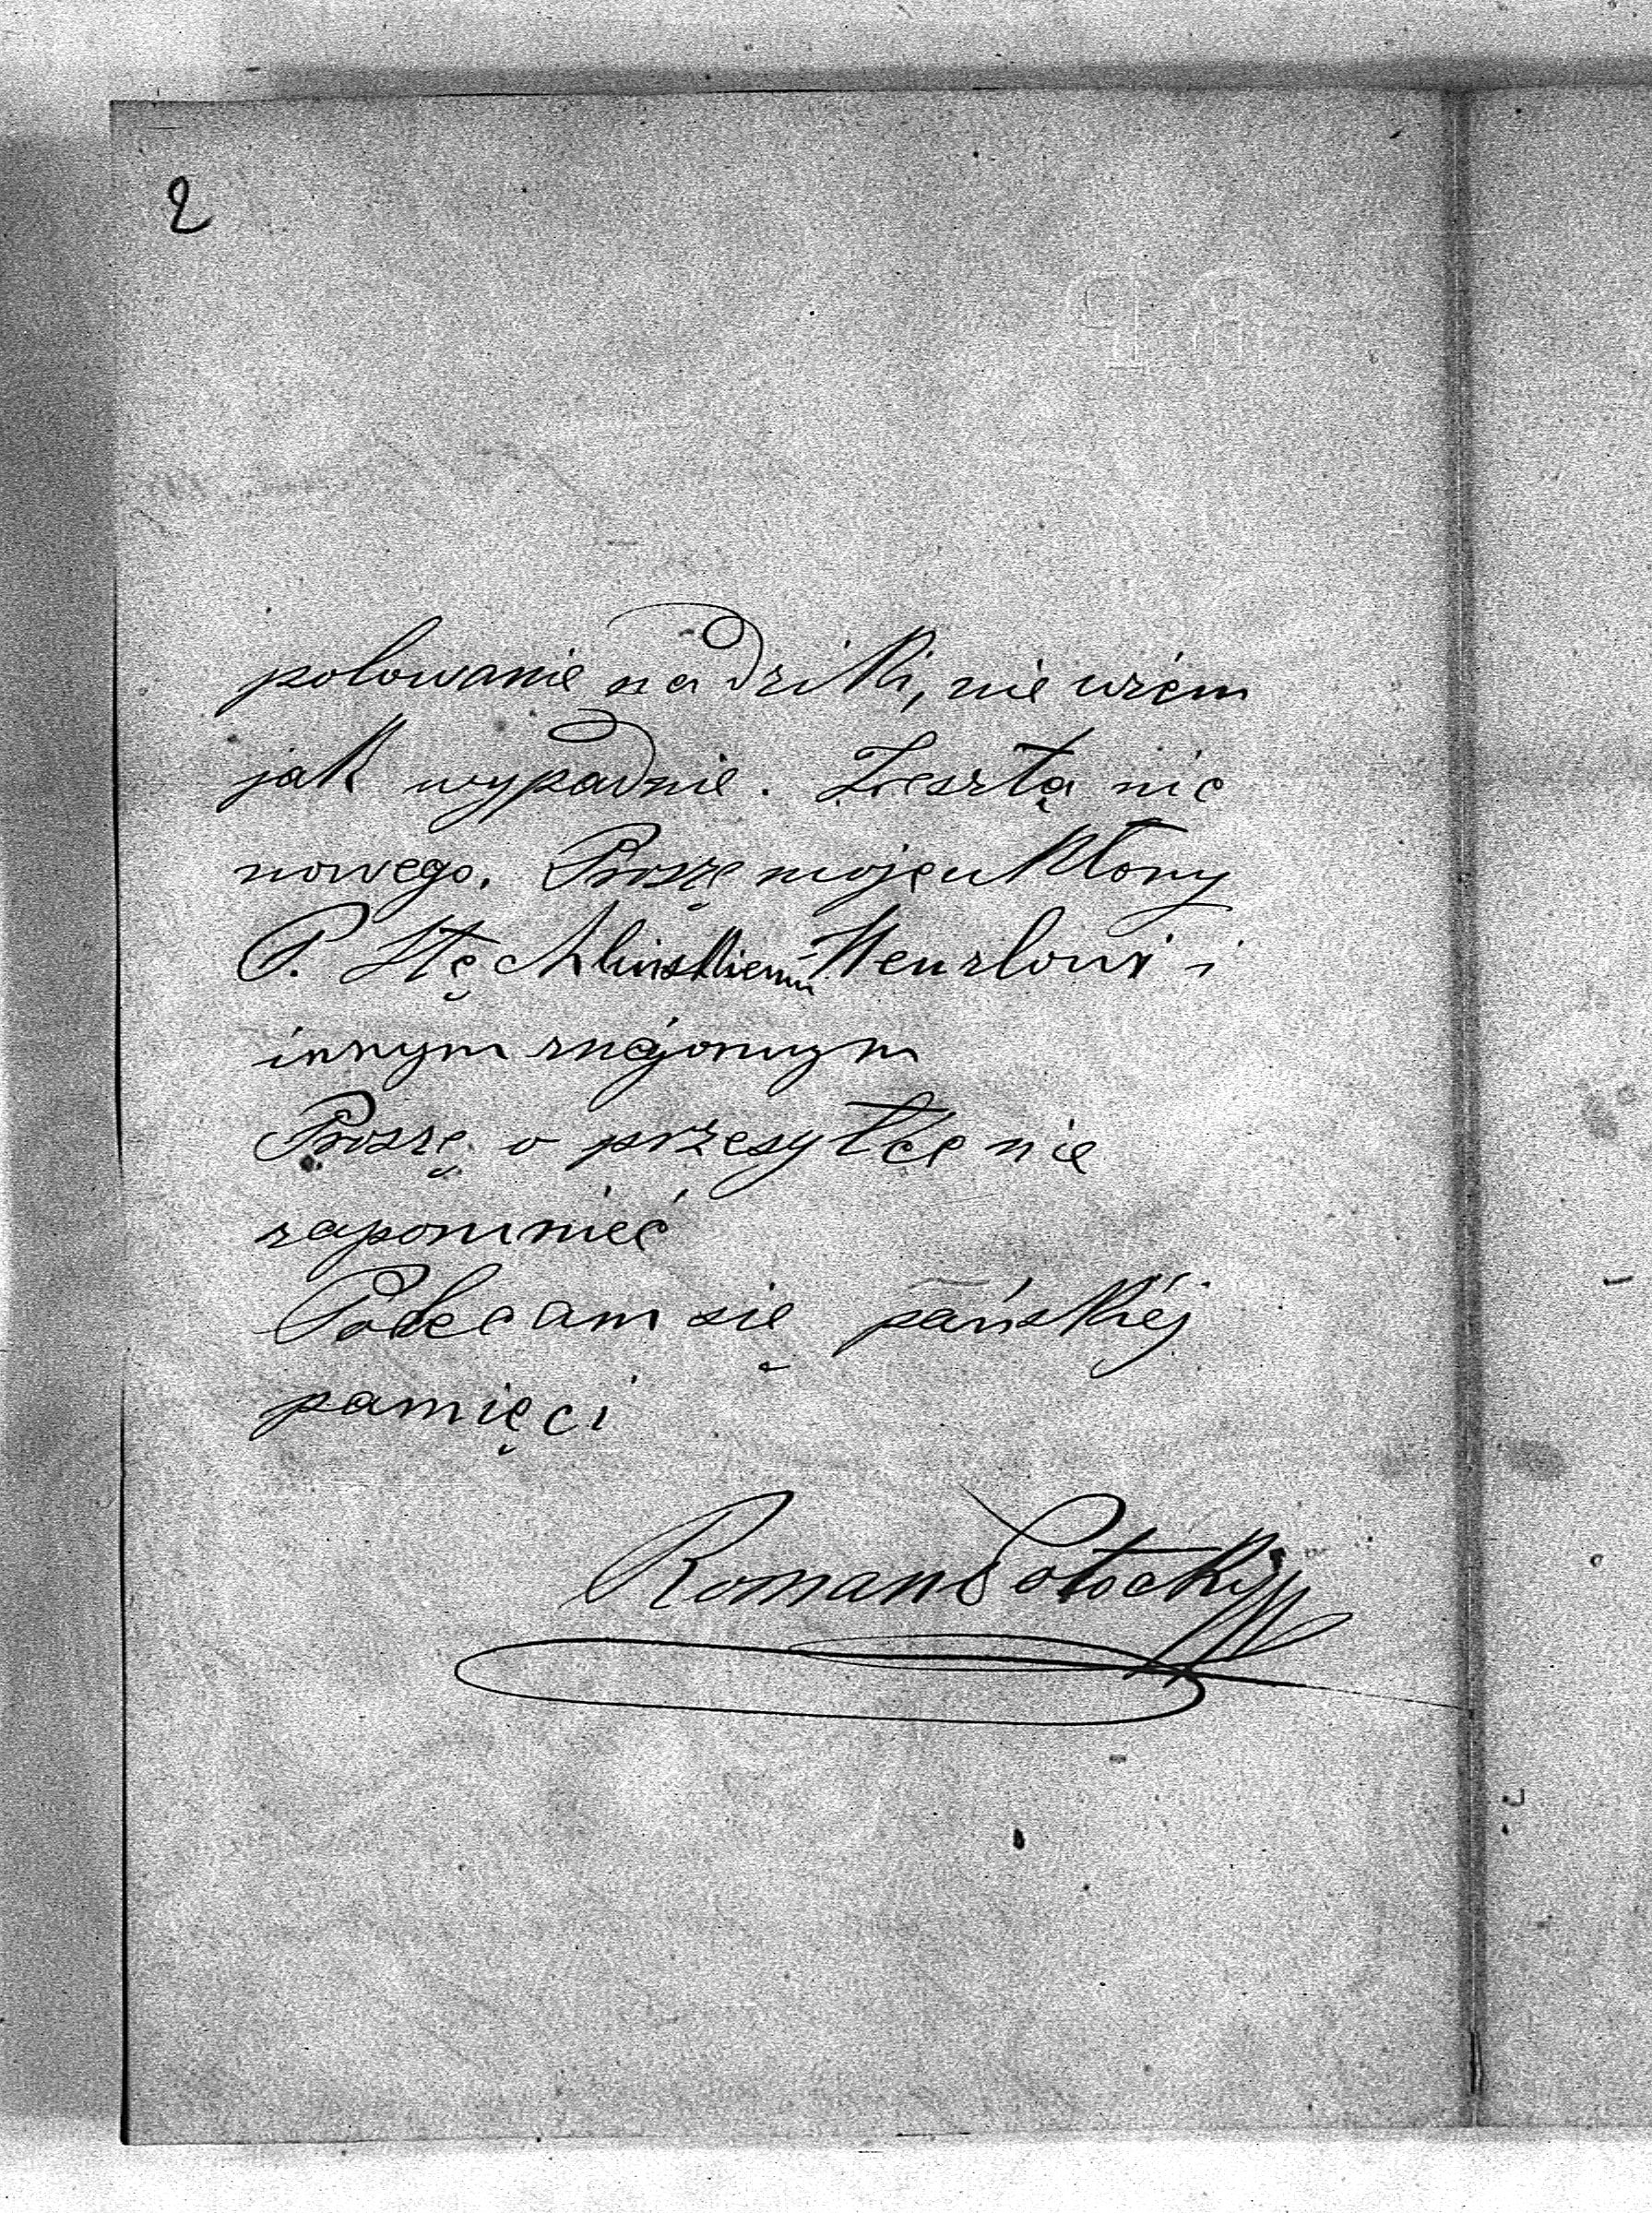 2
polowanie na dziki, nie wiem
jak wypadnie. Zresztą nic
nowego. Proszę moje ukłony
P. Stę Wenzlowi i
innym znajomym
Proszę o przesyłce nie
zapomnieć
Polecam się pańskiéj
pamięci
Roman Potocki